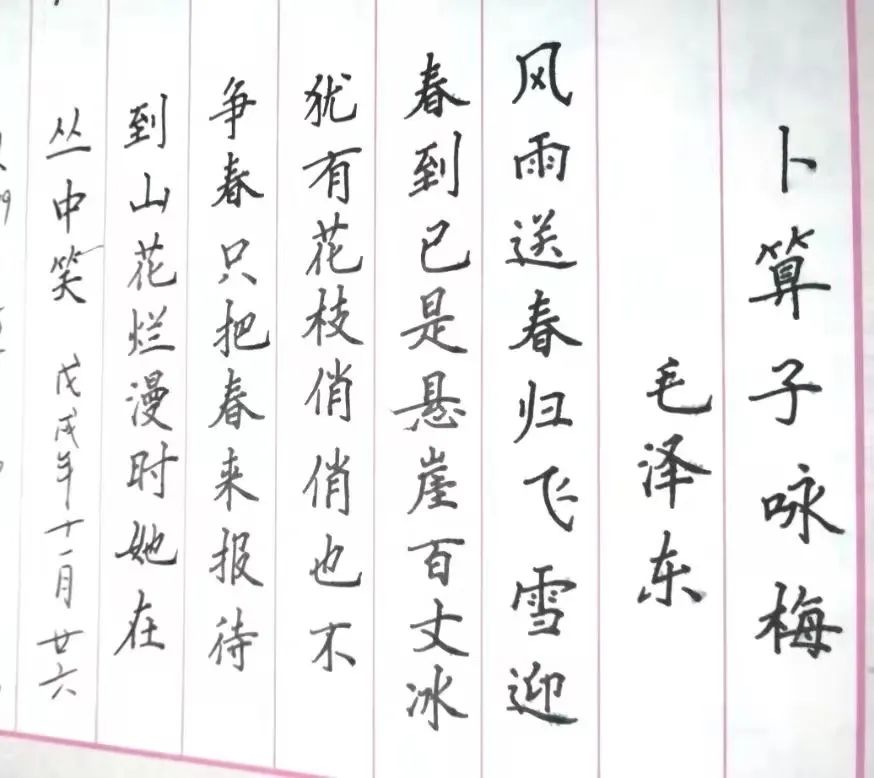 卜算子咏梅
毛泽东
风雨送春归飞雪迎
春到已是悬崖百丈冰
犹有花枝俏俏也不
争春只把春来报待
到山花烂漫时她在
丛中笑 戊戌年十一月廿六